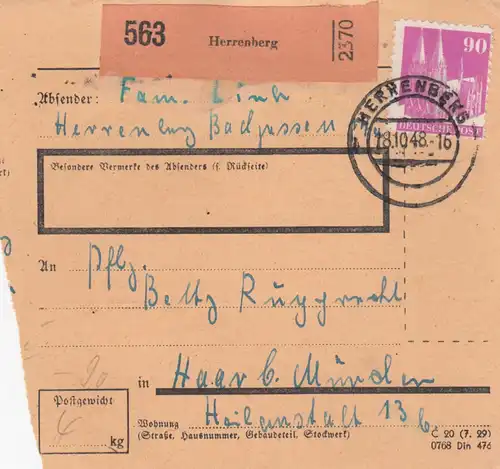 563 Herrenberg 2370
90
DEUTSCHE POST
HERRENBERG
18.10.48.-16
Absender: Fam. Link
Herrenberg Badgassen
Besondere Vermerke des Absenders (s. Rückseite)
An Pflz.
Beltz Rupprecht
-90
in Haar b. München
Postgewicht
4 kg
Wohnung Heilanstalt 13 b
(Straße, Hausnummer, Gebäudeteil, Stockwerk)
C 20 (7. 29)
0768 Din 476